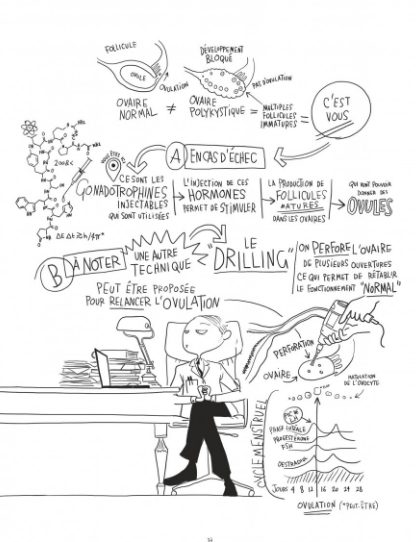 FOLLICULE
OVULE
OVULATION
DÉVELOPPEMENT
BLOQUÉ
PAS D'OVULATION
OVAIRE
NORMAL
≠
OVAIRE
POLYKYSTIQUE
=
MULTIPLES
FOLLICULES
IMMATURES
=
C'EST
VOUS
VOUS ÊTES ICI
A EN CAS D'ÉCHEC
CE SONT LES
GONADOTROPHINES
INJECTABLES
QUI SONT UTILISÉES
L'INJECTION DE CES
HORMONES
PERMET DE STIMULER
LA PRODUCTION DE
FOLLICULES
MATURES
DANS LES OVAIRES
QUI VONT POUVOIR
DONNER DES
OVULES
B À NOTER
UNE AUTRE
TECHNIQUE
LE
"DRILLING"
ON PERFORE L'OVAIRE
DE PLUSIEURS OUVERTURES
CE QUI PERMET DE RÉTABLIR
LE FONCTIONNEMENT "NORMAL"
PEUT ÊTRE PROPOSÉE
POUR RELANCER L'OVULATION
PERFORATION
OVAIRE
MATURATION
DE L'OVOCYTE
CYCLE MENSTRUEL
PIC DE
LH
PHASE LUTÉALE
PROGESTÉRONE
FSH
OESTRADIOL
JOURS 4 8 12 16 20 24 28
OVULATION (*PEUT-ÊTRE)